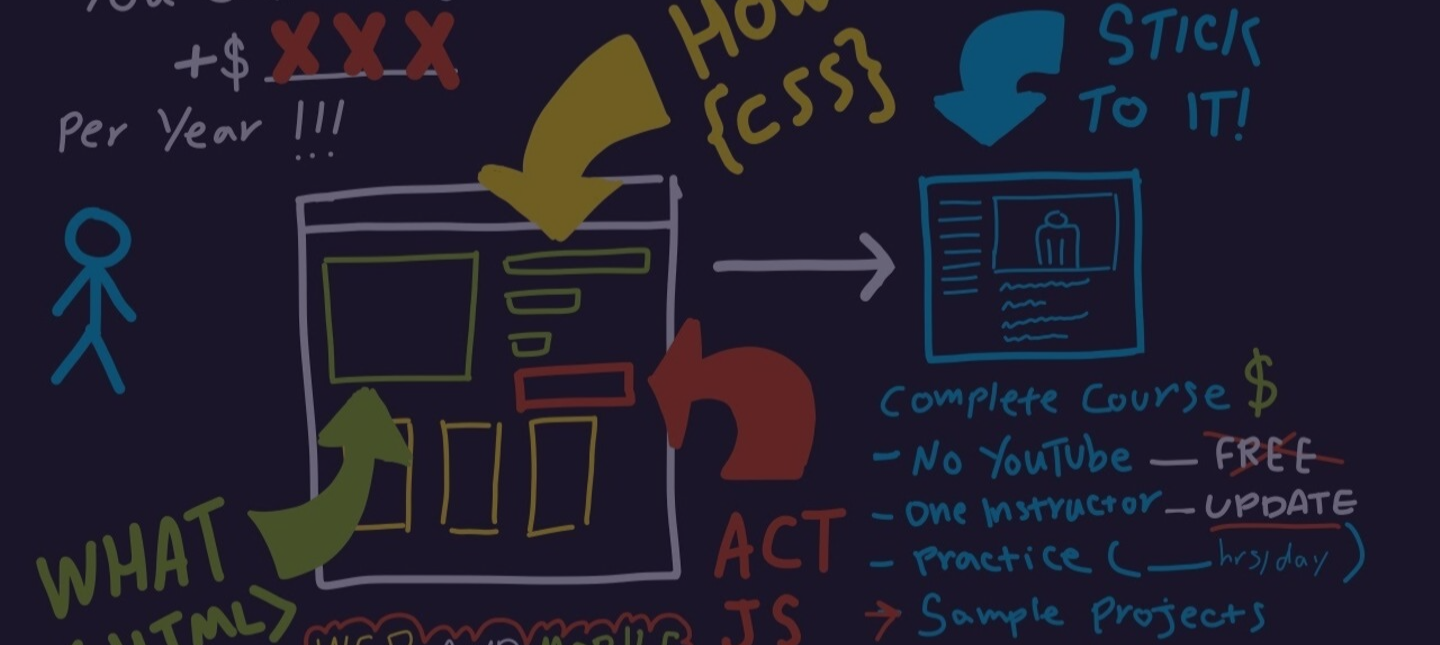 You
+$ XXX
Per Year !!!
HOW
{CSS}
STICK
TO IT!
WHAT
HTML>
ACT
JS
Complete Course $
- No YouTube — FREE
- One Instructor — UPDATE
- Practice (___ hrs/day)
→ Sample Projects
WEB AND MOBILE